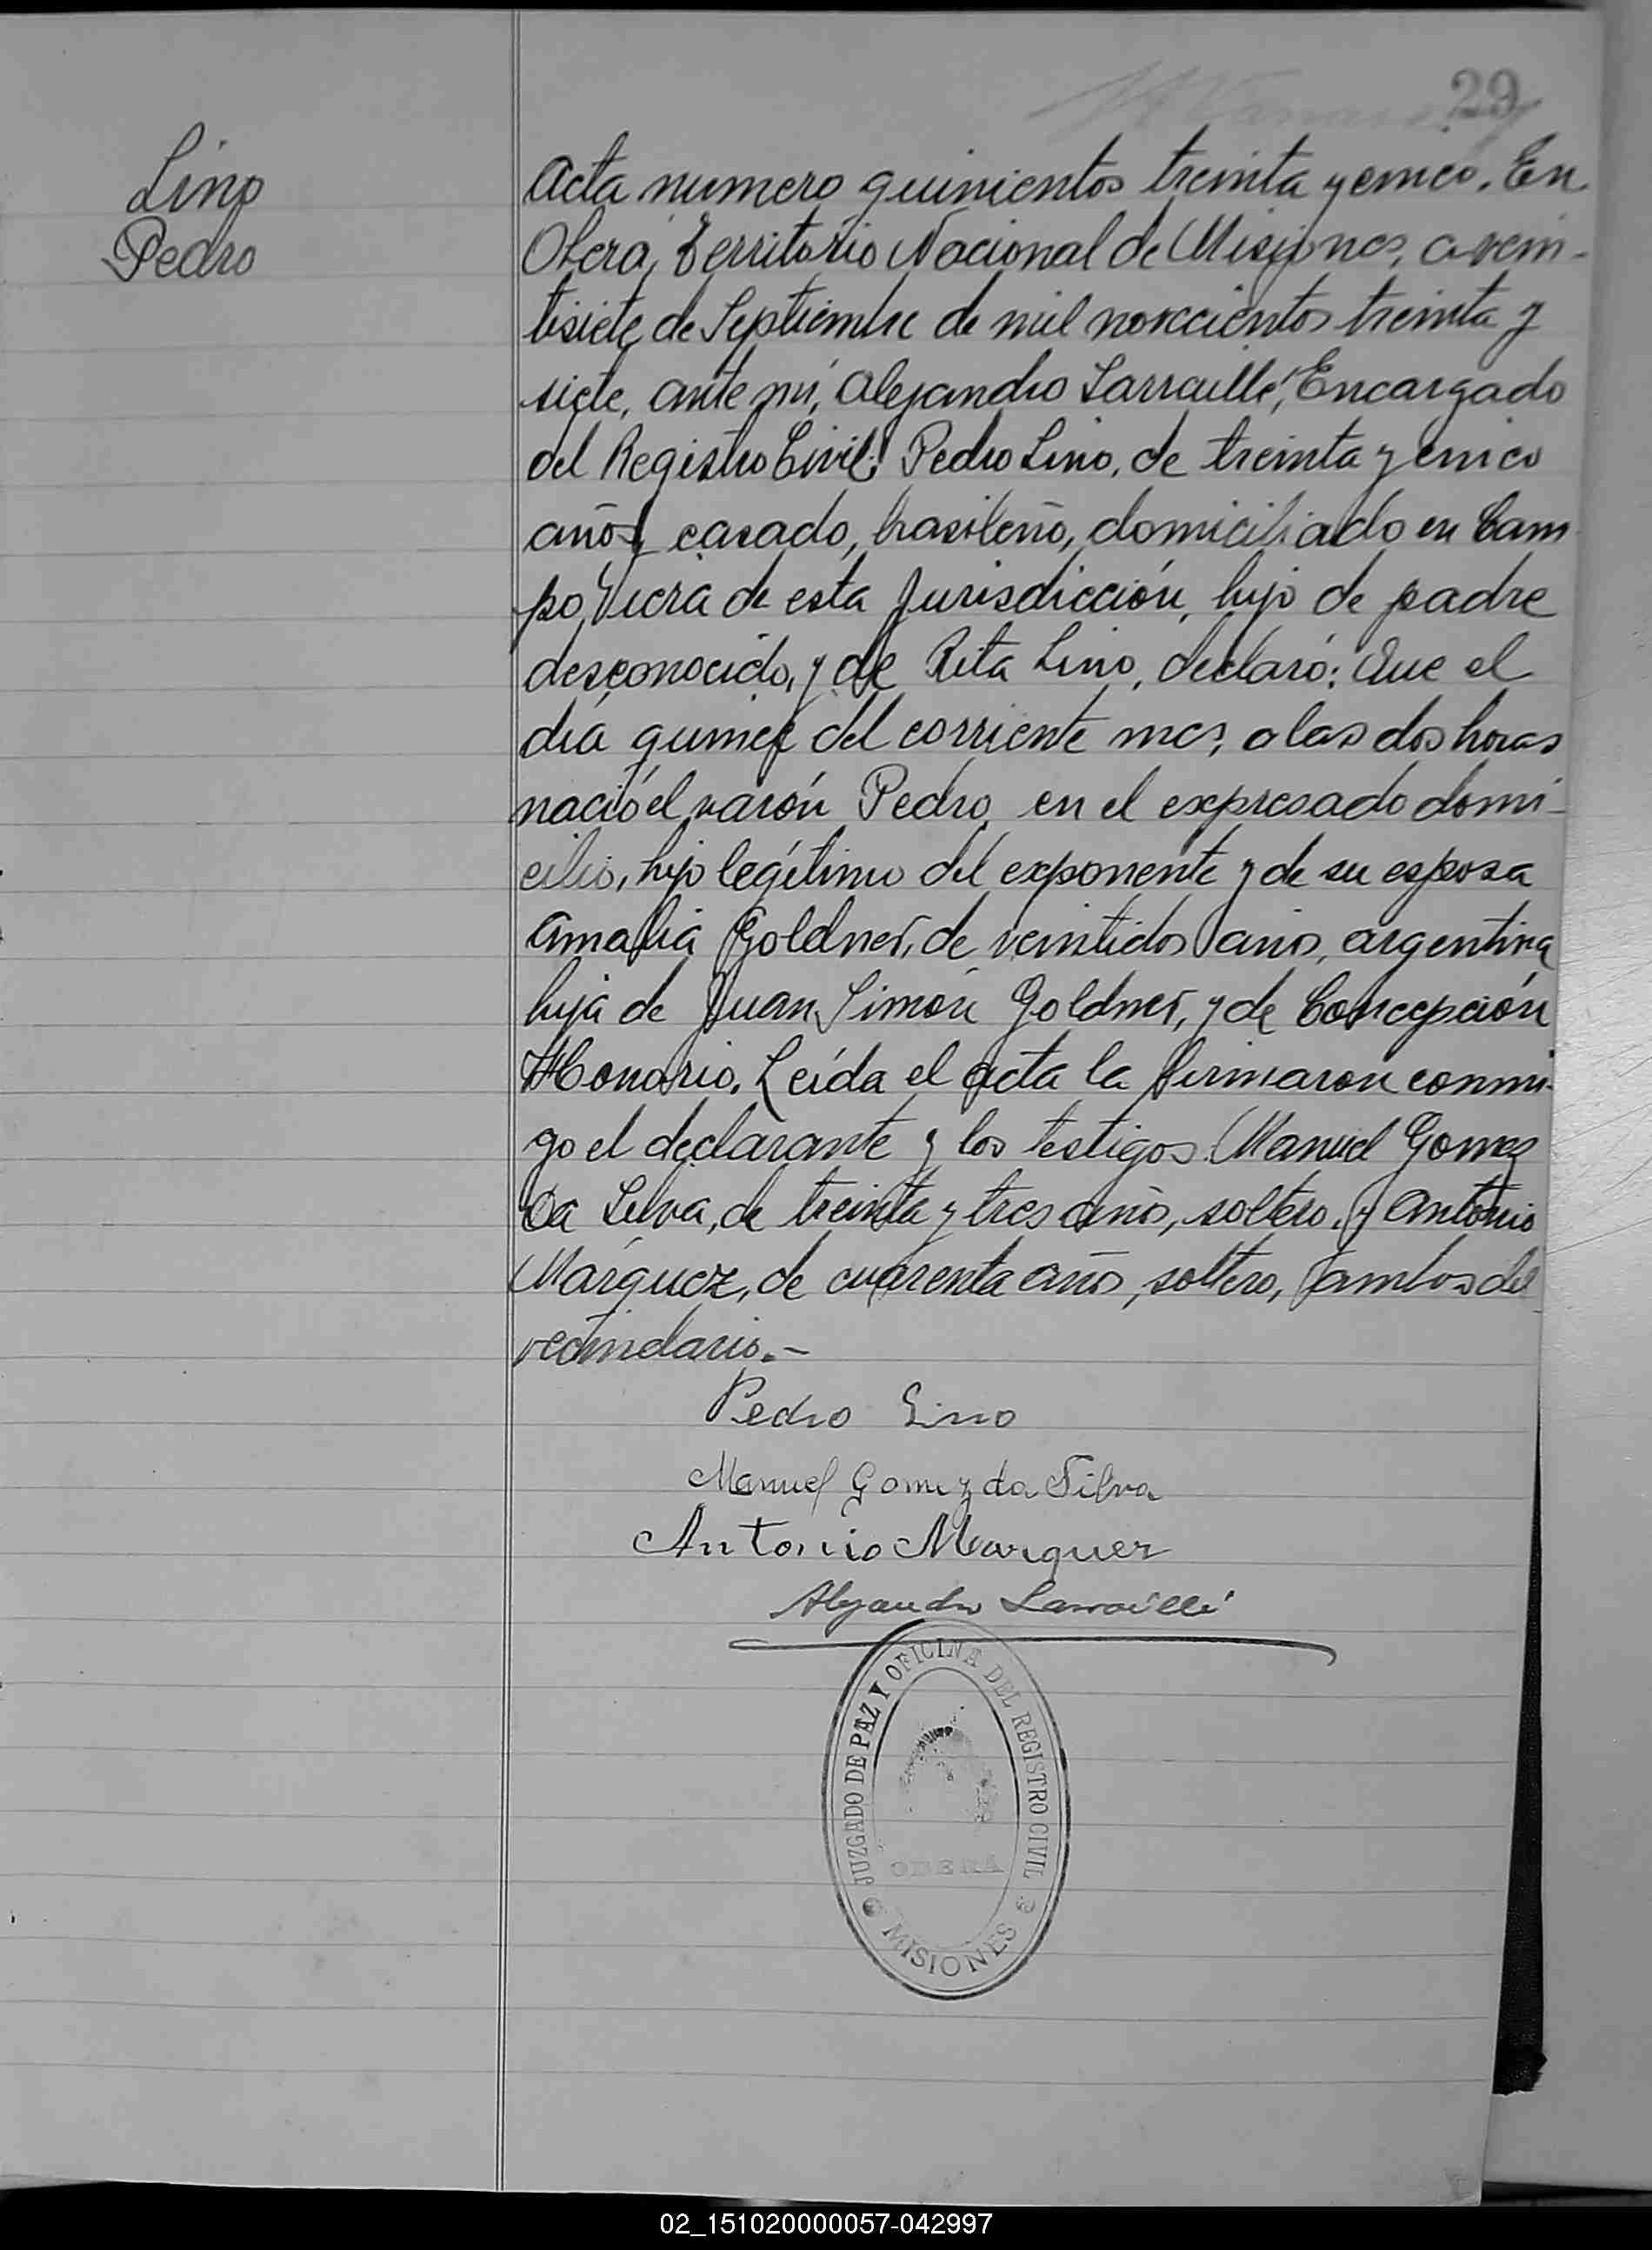 29
Lino
Pedro
Acta numero quinientos treinta y cinco. En
Oberá, Territorio Nacional de Misiones, a vein-
tisiete de Septiembre de mil novecientos treinta y
siete, ante mí, Alejandro Larraillé, Encargado
del Registro Civil: Pedro Lino, de treinta y cinco
años, casado, brasileño, domiciliado en Cam
po Viera de esta Jurisdicción, hijo de padre
desconocido, y de Rita Lino, declaró: Que el
día quince del corriente mes, a las dos horas
nació el varón Pedro, en el expresado domi-
cilio, hijo legítimo del exponente y de su esposa
Amalia Goldner, de veintidos años, argentina
hija de Juan Simón Goldner, y de Concepción
Honorio. Leída el acta la firmaron conmi-
go el declarante y los testigos Manuel Gomez
Da Silva, de treinta y tres años, soltero, y Antonio
Márquez, de cuarenta años, soltero, ambos del
vecindario.-
Pedro Lino
Manuel Gomez da Silva
Antonio Marquez
Alejandro Larraillé
JUZGADO DE PAZ Y OFICINA DEL REGISTRO CIVIL
OBERÁ
MISIONES
02_151020000057-042997